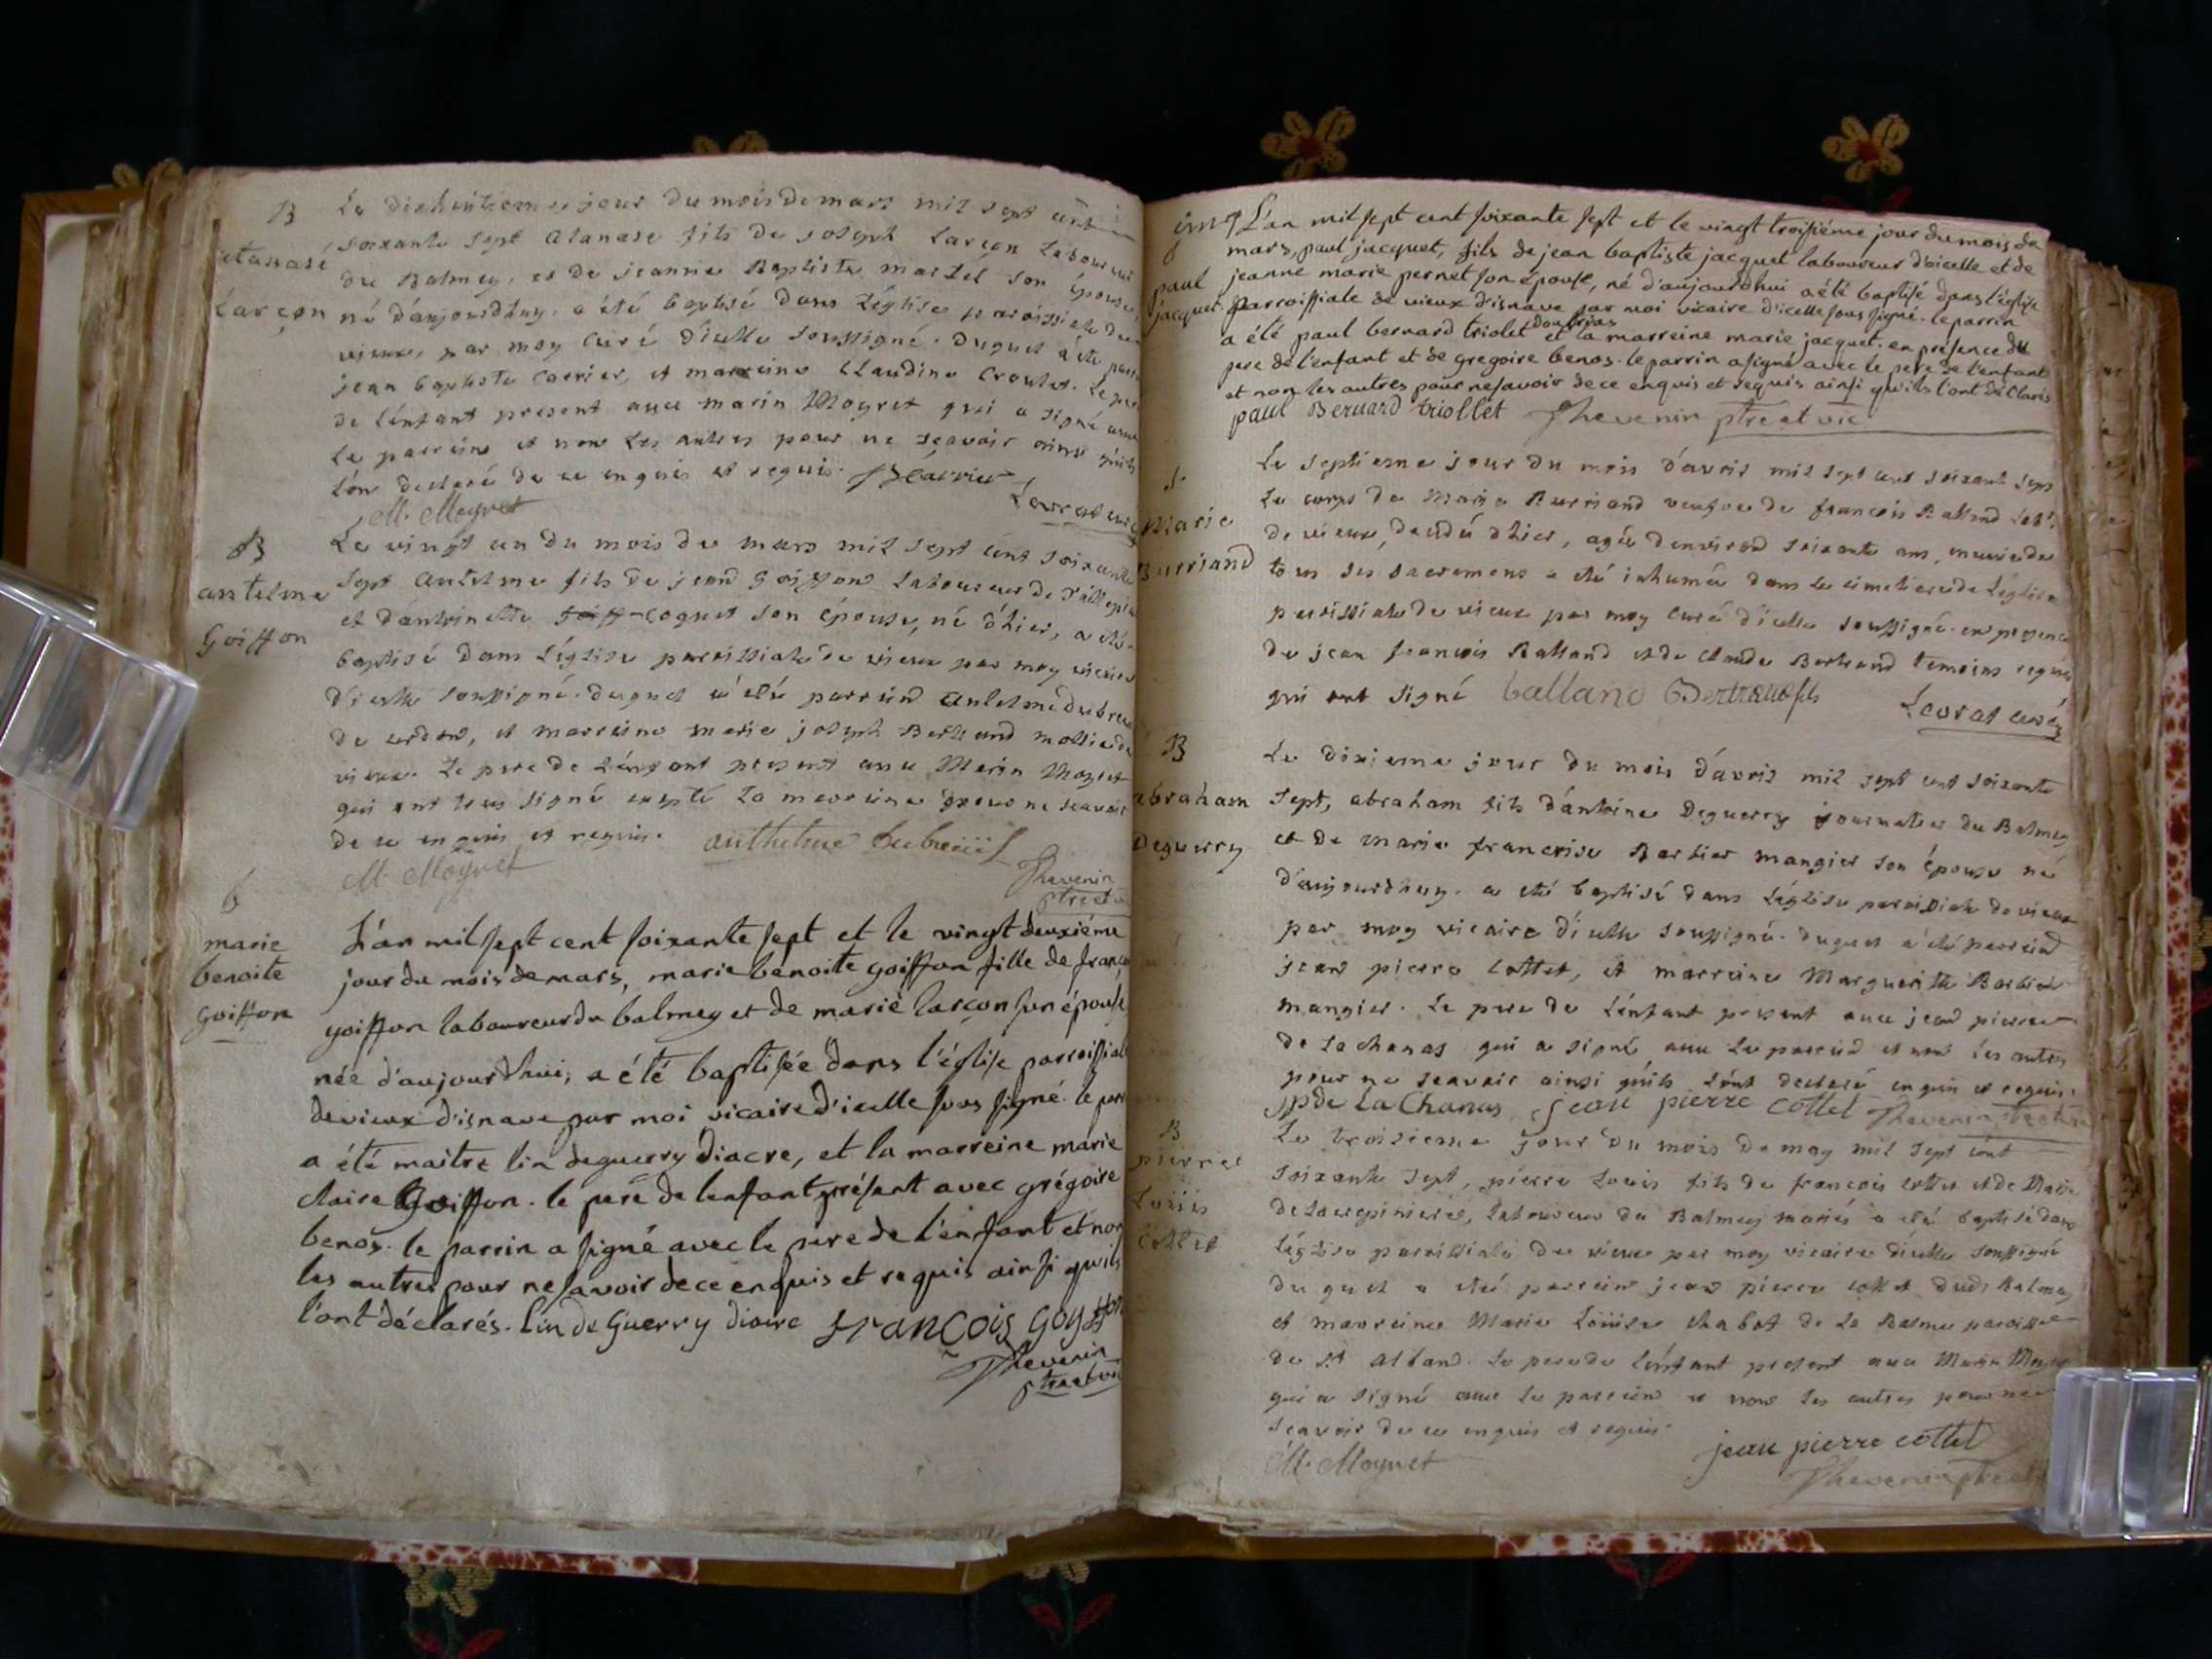 B
Le dixhuitieme jour du mois de mars mil sept cent
atanase
soixante sept atanase fils de joseph Larçon Laboureur
du Balmey, et de jeanne Baptiste martel son épouse,
Larçon
né d'aujourdhuy, a été baptisé dans L'église paroissiale de
vieux, par moy curé d'icelle soussigné. duquel a été parr
jean baptiste Carrier, et marreine CLaudine Le pere
de L'enfant present avec marin Moyret qui a signé avec
Le parrein et non Les autres pour ne sçavoir ainsi qu'ils
L'on declaré de ce enquis et requis. Carrier
M. Moyret Levrat curé
B
Le vingt un du mois de mars mil sept cent soixante
antelme
sept antelme fils de jean goiffon Laboureur de
Goiffon
et d'antoinette coquet son épouse, né d'hier, a été
baptisé dans L'église paroissiale de vieux par moy vicaire
d'icelle soussigné. duquel a été parrein antelme dubreu
de cerdon, et marreine marie joseph Bertrand de
vieux. Le pere de L'enfant present avec Marin Moyret
qui ont tous signé excepté La marreine pour ne sçavoir
de ce enquis et requis. anthelme dubreüil
M. Moyret
Thevenin
ptre et v
b
marie
benoite
goiffon
L'an mil sept cent soixante sept et le vingt deuxiéme
jour du mois de mars, marie benoite goiffon fille de franço
goiffon laboureur du balmey et de marie larçon son épouse
née d'aujourdhui, a été baptisée dans l'église parroissial
de vieux d'isnave par moi vicaire d'icelle sous signé. le parr
a été maitre lin deguerry diacre, et la marreine marie
claire Goiffon. le pere de lenfant présent avec grégoire
benos. le parrin a signé avec le pere de l'enfant et non
les autres pour ne savoir de ce enquis et requis ainsi quils
l'ont déclarés. Lin de Guerry diacre françois goyffon
Thevenin
ptre et vic
L'an mil sept cent soixante sept et le vingt troisiéme jour du mois de
b
mars, paul jacquet, fils de jean baptiste jacquet laboureur d'icelle et de
paul
jeanne marie pernet son épouse, né d'aujourdhui a été baptisé dans l'église
jacquet
parroissiale de vieux d'isnave par moi vicaire d'icelle sous signé. le parrin
a été paul bernard triolet et la marreine marie jacquet. en présence du
pere de l'enfant et de gregoire benos. le parrin a signé avec le pere de l'enfant
et non les autres pour ne savoir de ce enquis et requis ainsi qu'ils l'ont déclarés
paul Bernard triollet Thevenin ptre et vic
S.
Marie
Burriand
Le septieme jour du mois d'avril mil sept cent soixante sept
Le corps de Marie Burriand veufve de françois Balland Lab.
de vieux, decedé d'hier, agée d'environ soixante ans, munie de
tous ses sacremens a été inhumée dans Le cimetiere de L'église
paroissiale de vieux par moy curé d'icelle soussigné. en presence
de jean françois Balland et de Claude Bertrand temoins requis
qui ont signé balland Bertrand fils
Levrat curé
B
abraham
Deguerry
Le dixieme jour du mois d'avril mil sept cent soixante
sept, abraham fils d'antoine Deguerry journalier du Balmey
et de marie françoise Barbier mangier son épouse né
d'aujourdhuy. a été baptisé dans L'église paroissiale de vieux
par moy vicaire d'icelle soussigné. duquel a été parrein
jean pierre Cottet, et marreine Marguerite Barbier
mangier. Le pere de L'enfant present avec jean pierre
de Lachanas qui a signé avec Le parrein et non les autres
pour ne sçavoir ainsi qu'ils L'ont declaré enquis et requis.
jp de LaChanas Jean pierre cottet Thevenin ptre et vic
B
pierre
Loüis
Cottet
Le troisieme jour du mois de may mil sept cent
soixante sept, pierre Louis fils de françois cottet et de Marie
delacrepiniere, Laboureur du Balmey mariés a été baptisé dans
L'église paroissiale de vieux par moy vicaire d'icelle soussigné
duquel a été parrein jean pierre cottet dud. Balmey
et marreine Marie Loüise chabot de La Balme paroisse
de St Alband. Le pere de L'enfant present avec Marin Moyret
qui a signé avec Le parrein et non Les autres pour ne
sçavoir de ce enquis et requis.
M. Moyret jean pierre cottet
Thevenin ptre et